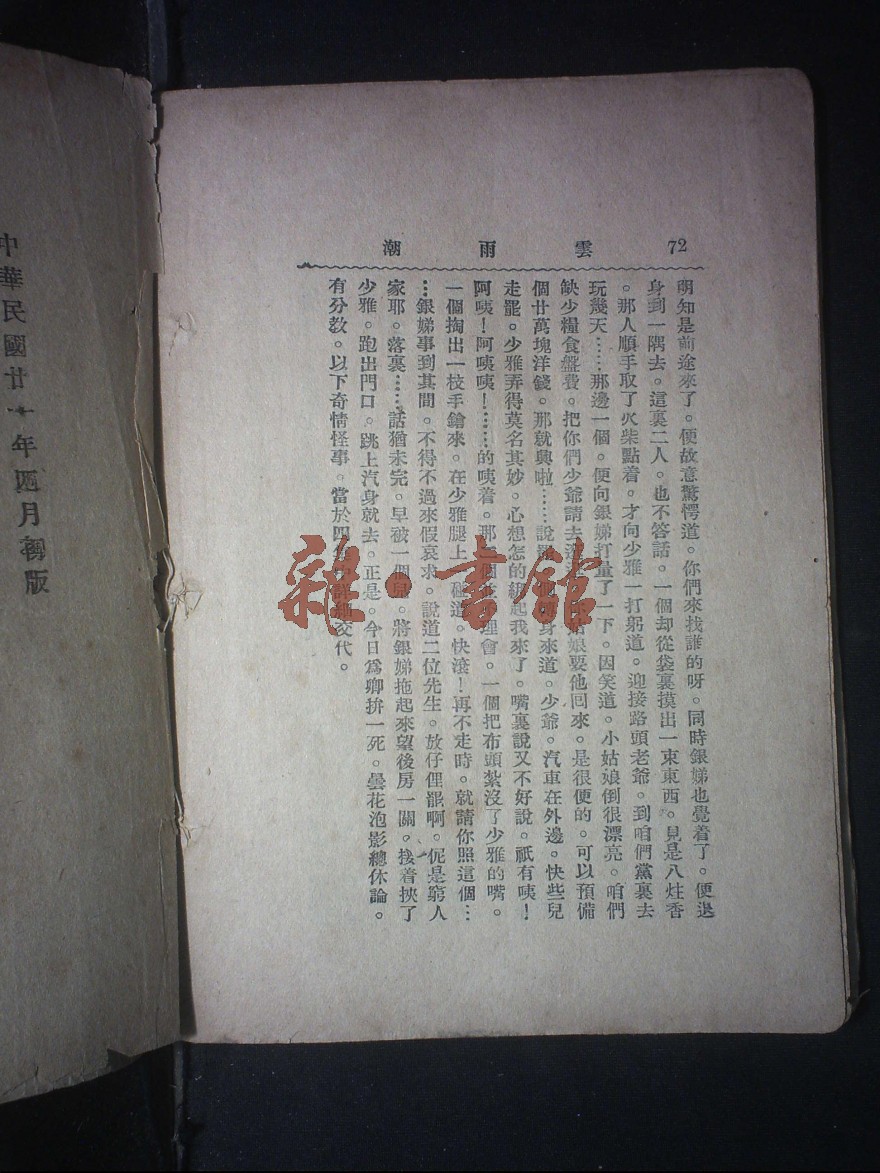 72 雲雨潮
明知是前途來了。便故意驚愕道。你們來找誰的呀。同時銀娣也覺着了。便退
身到一隅去。這裏二人。也不答話。一個却從袋裏摸出一束東西。見是八炷香
。那人順手取了火柴點着。才向少雅一打躬道。迎接路頭老爺。到咱們黨裏去
玩幾天……那邊一個。便向銀娣打量了一下。因笑道。小姑娘倒很漂亮。咱們
缺少糧食盤費。把你們少爺請去姑娘要他回來。是很便的。可以預備
個廿萬塊洋錢。那就興啦……說身來道。少爺。汽車在外邊。快些兒
走罷。少雅弄得莫名其妙。心想怎的綁起我來了。嘴裏說又不好說。祇有咦！
阿咦！阿咦咦！……的咦着。那個理會。一個把布頭紮沒了少雅的嘴。
一個掏出一枝手鎗來。在少雅腿上道。快滾！再不走時。就請你照這個…
…銀娣事到其間。不得不過來假哀求。說道二位先生。放仔俚罷啊。伲是窮人
家耶。落裏……話猶未完。早被一個將銀娣拖起來望後房一關。接着挾了
少雅。跑出門口。跳上汽身就去。正是。今日爲卿拚一死。曇花泡影總休論。
有分教。以下奇情怪事。當於四交代。
中華民國廿年四月初版
雜·書館